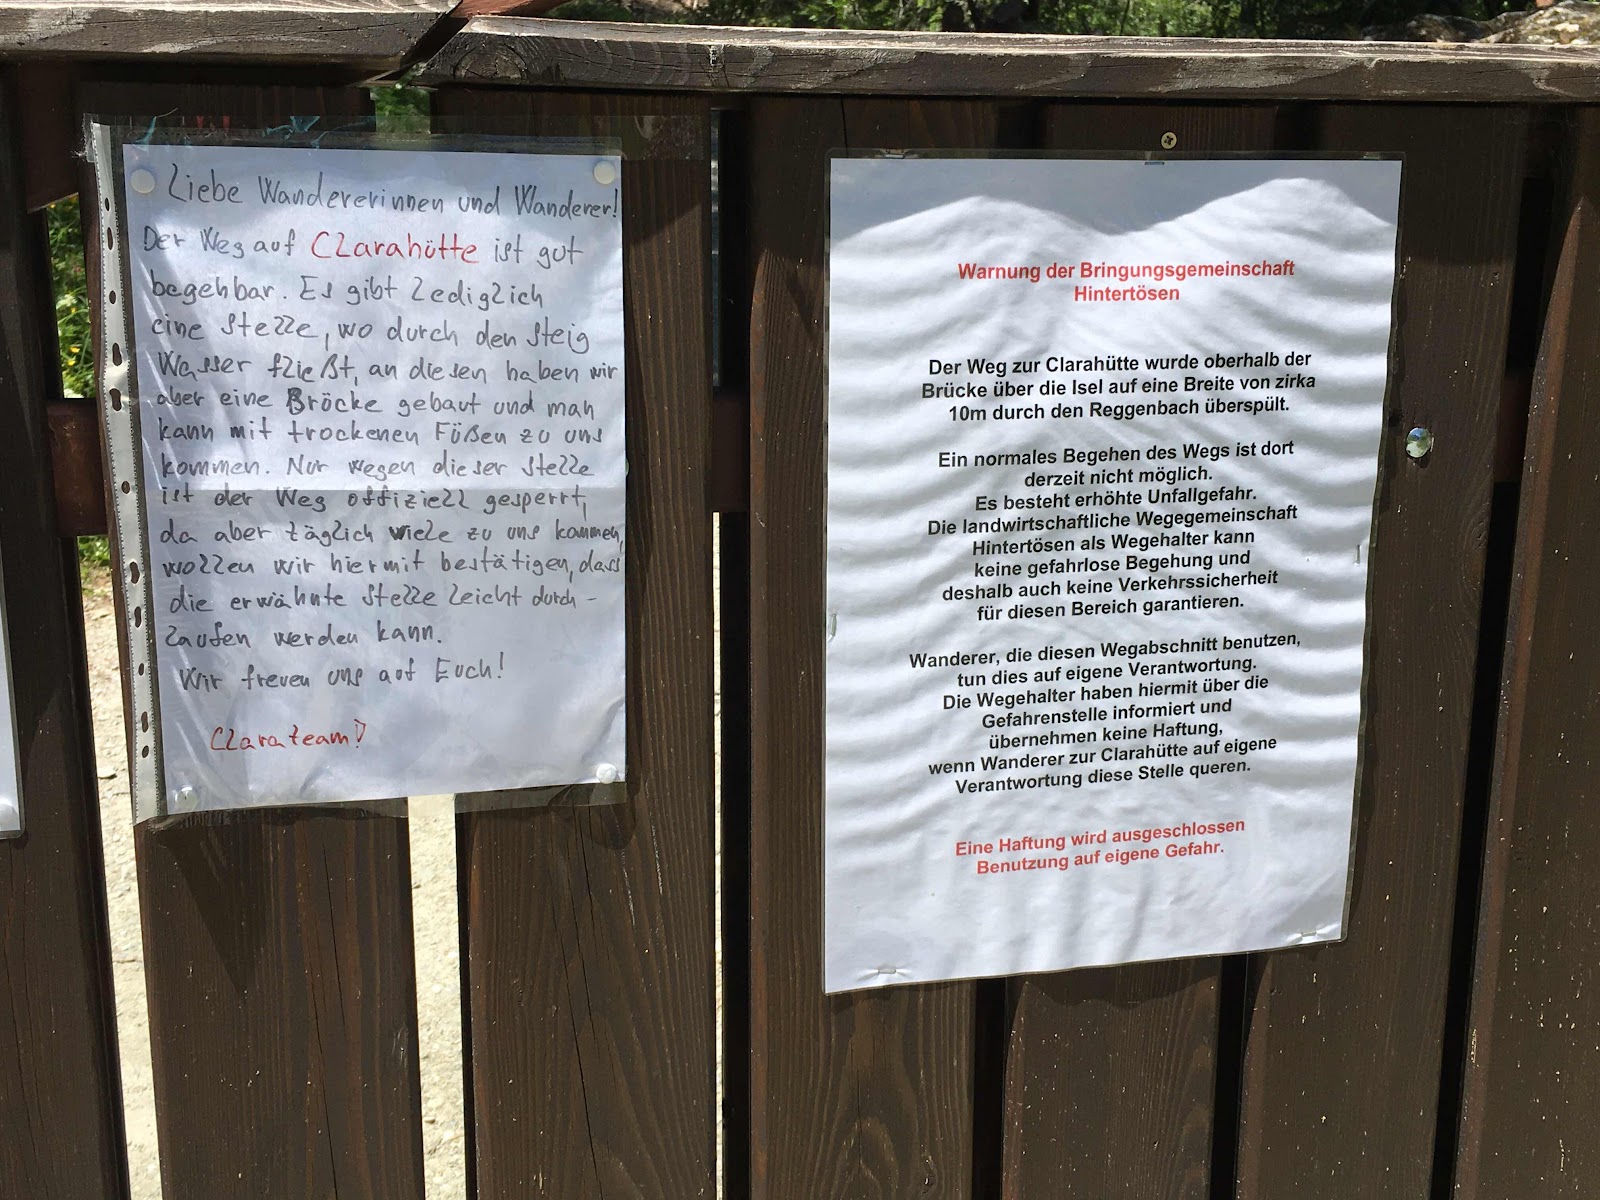 Liebe Wandererinnen und Wanderer!
Der Weg auf Clarahütte ist gut
begehbar. Es gibt lediglich
eine Stelle, wo durch den Steig
Wasser fließt, an diesen haben wir
aber eine Brücke gebaut und man
kann mit trockenen Füßen zu uns
kommen. Nur wegen dieser Stelle
ist der Weg offiziell gesperrt,
da aber täglich viele zu uns kommen,
wollen wir hiermit bestätigen, dass
die erwähnte Stelle leicht durch-
laufen werden kann.
Wir freuen uns auf Euch!
Clarateam!
Warnung der Bringungsgemeinschaft
Hintertösen
Der Weg zur Clarahütte wurde oberhalb der
Brücke über die Isel auf eine Breite von zirka
10m durch den Reggenbach überspült.
Ein normales Begehen des Wegs ist dort
derzeit nicht möglich.
Es besteht erhöhte Unfallgefahr.
Die landwirtschaftliche Wegegemeinschaft
Hintertösen als Wegehalter kann
keine gefahrlose Begehung und
deshalb auch keine Verkehrssicherheit
für diesen Bereich garantieren.
Wanderer, die diesen Wegabschnitt benutzen,
tun dies auf eigene Verantwortung.
Die Wegehalter haben hiermit über die
Gefahrenstelle informiert und
übernehmen keine Haftung,
wenn Wanderer zur Clarahütte auf eigene
Verantwortung diese Stelle queren.
Eine Haftung wird ausgeschlossen
Benutzung auf eigene Gefahr.